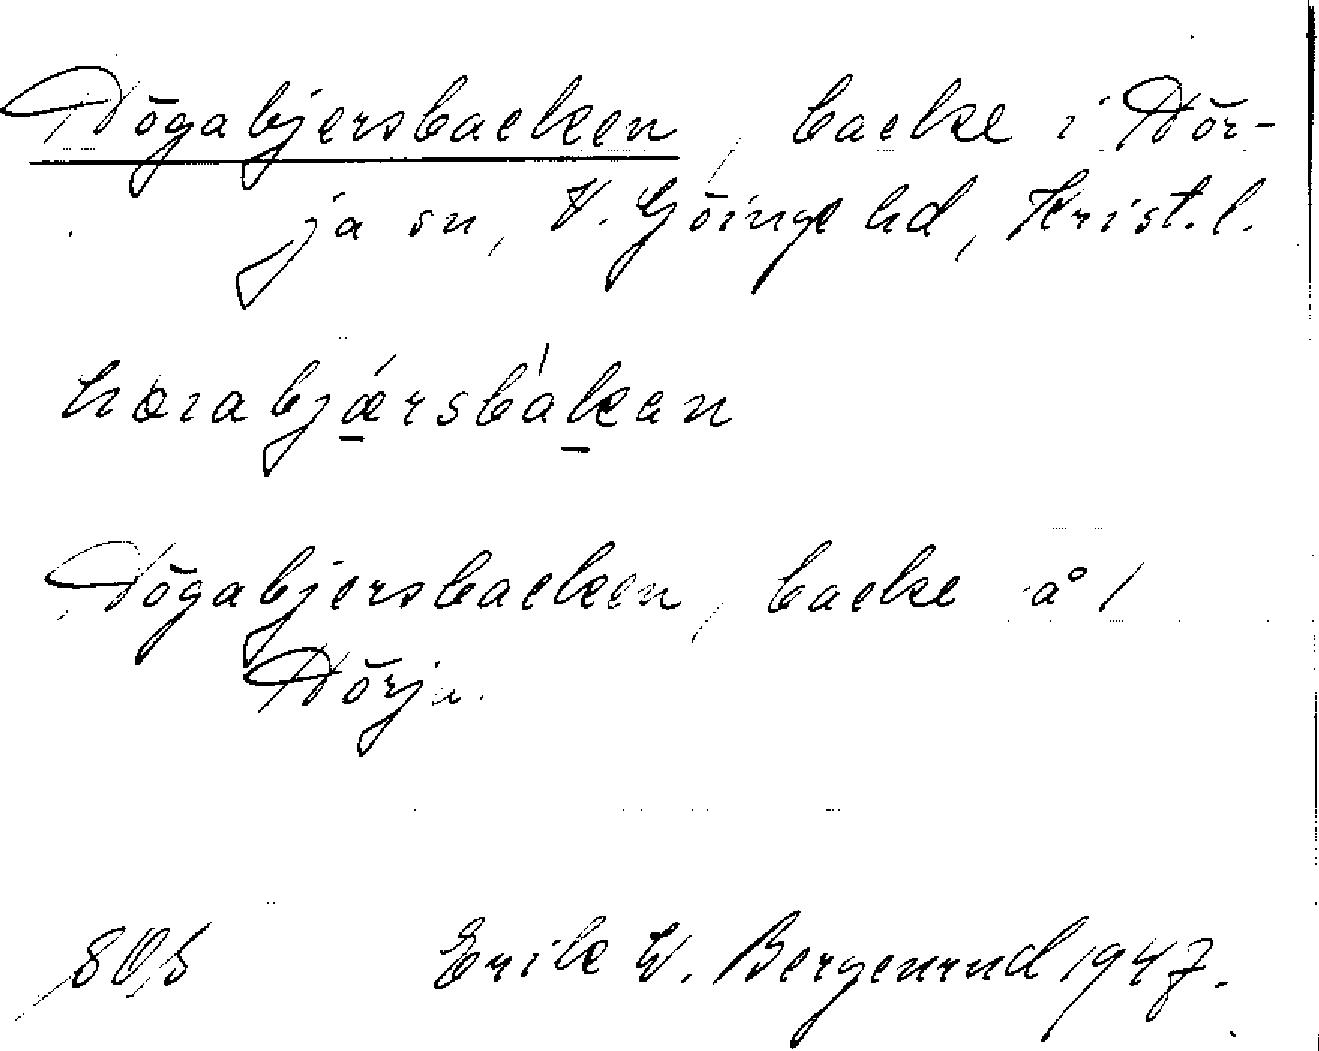 Högabjersbacken, backe i Hör-
ja sn, V. Göinge hd, Krist. l.
hœrabjæ̱rsba̱kan
Högabjersbacken, backe å 1
Hörja.
Erik W. Bergenrud 1947.